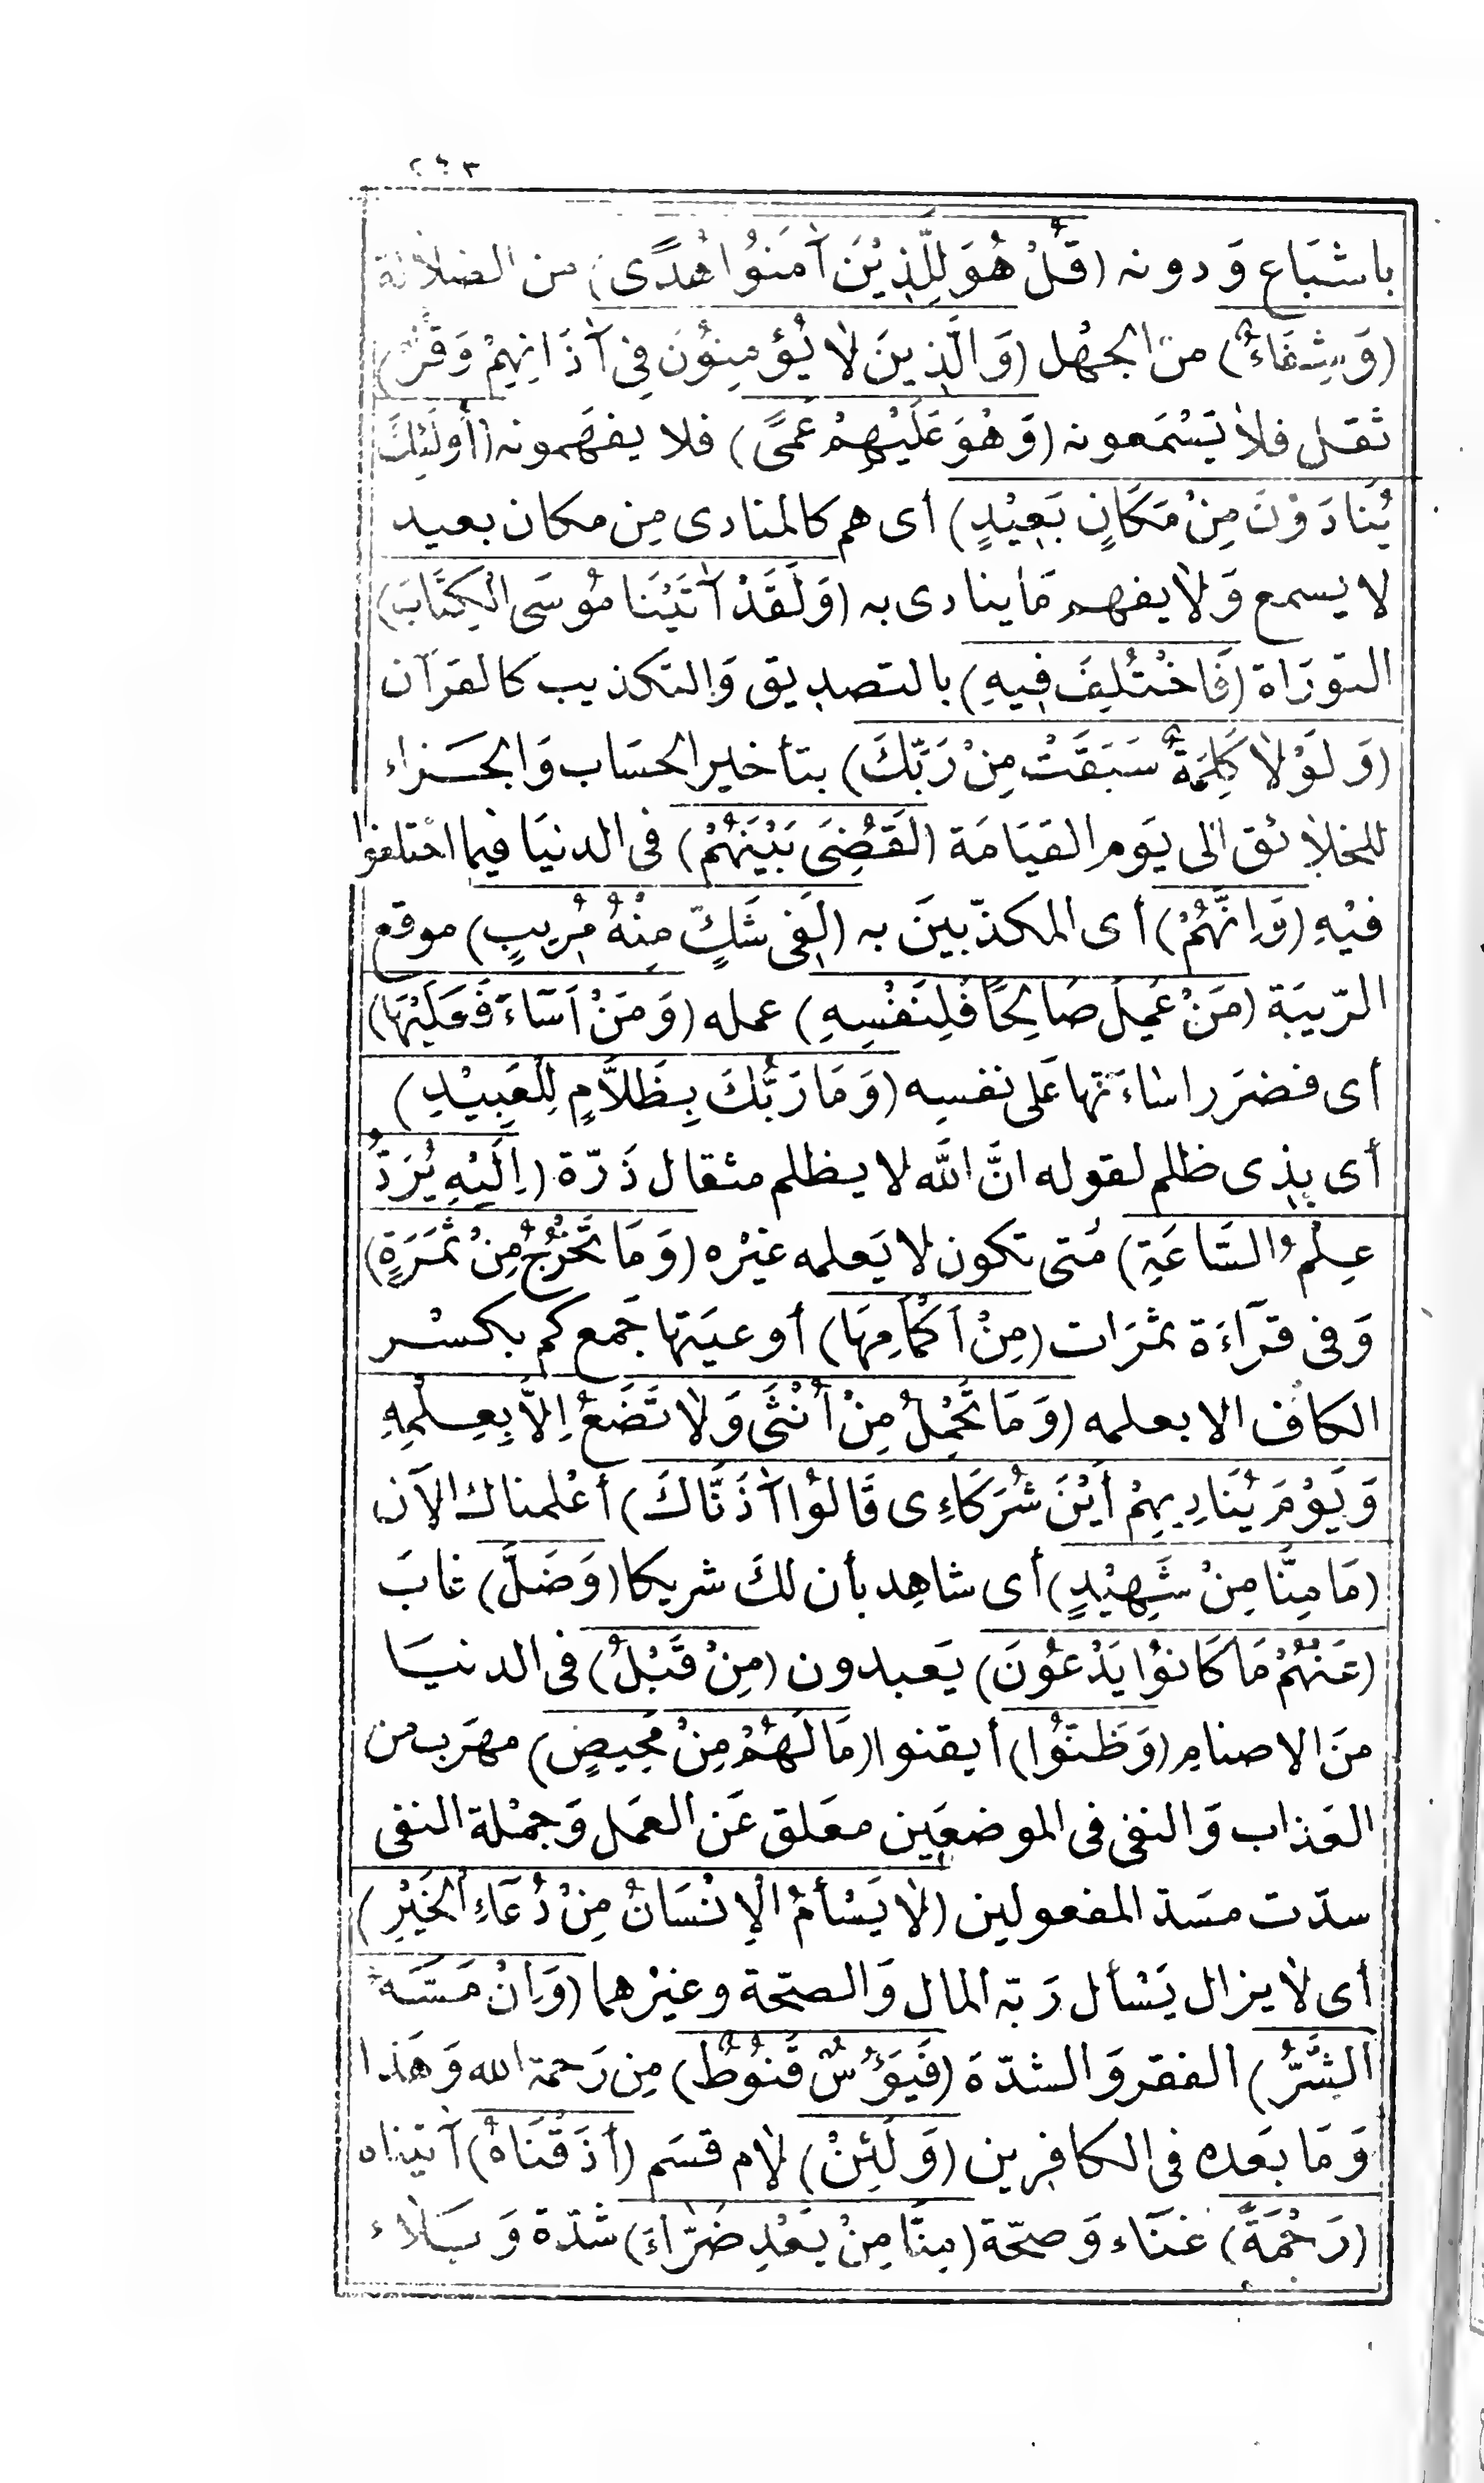 باشبَاع وَدونه (قُلْ هُوَ لِلَّذِيْنَ آمَنُوا هُدًى) من الضلالة
(وَشِفَاءٌ) من الجهْل (وَالَّذِينَ لَا يُؤْمِنُوْنَ فِى آذَانِهِمْ وَقْرٌ)
ثقل فلا يَسْمَعونه (وَهُوَ عَلَيْهِمْ عَمًى) فلا يفهَمونه (أُولَئِكَ
يُنَادَوْنَ مِنْ مَكَانٍ بَعِيْدٍ) أى هم كالمنادى مِن مكان بعيد
لا يسمع وَلا يفهم مَا ينادى به (وَلَقَدْ آتَيْنَا مُوسَى الْكِتَابَ)
التورَاة (فَاخْتُلِفَ فِيهِ) بالتصديق وَالتكذيب كالقرآن
(وَلَوْلَا كَلِمَةٌ سَبَقَتْ مِنْ رَبِّكَ) بتأخير الحسَاب وَالجَزاء
للخلائق الى يَوم القيَامَة (لَقُضِىَ بَيْنَهُمْ) فى الدنيَا فيما اختلفوا
فيْهِ (وَاِنَّهُمْ) أى المكذّبينَ به (لَفِى شَكٍّ مِنْهُ مُرِيبٍ) موقع
الرّيبَة (مَنْ عَمِلَ صَالِحًا فَلِنَفْسِهِ) عمله (وَمَنْ اَسَآءَ فَعَلَيْهَا)
أى فضرَر اساءَتها عَلى نفسِه (وَمَا رَبُّكَ بِظَلَّامٍ لِلْعَبِيْدِ)
أى بذِى ظلم لقوله انَّ اللَّه لا يظلم مثقال ذَرّة (اِلَيْهِ يُرَدُّ
عِلْمُ السَّاعَةِ) مَتى تكون لا يَعلمه غيْره (وَمَا تَخْرُجُ مِنْ ثَمَرَةٍ)
وَفى قرَآءَة ثمَرَات (مِنْ اَكْمَامِهَا) أوعيَتها جَمع كم بكسْر
الكاف الا بعلمه (وَمَا تَحْمِلُ مِنْ أُنْثَى وَلَا تَضَعُ اِلَّا بِعِلْمِهِ
وَيَوْمَ يُنَادِيهِمْ أَيْنَ شُرَكَاءِى قَالُوْا آذَنَّاكَ) أعْلمناك الآن
(مَا مِنَّا مِنْ شَهِيْدٍ) أى شاهِد بأن لكَ شريكا (وَضَلَّ) غابَ
(عَنْهُمْ مَا كَانُوْا يَدْعُوْنَ) يَعبدون (مِنْ قَبْلُ) فى الدنيَا
منَ الاصنامِ (وَظَنُّوْا) أيقنوا (مَا لَهُمْ مِنْ مَحِيصٍ) مهرَب من
العَذاب وَالنفى فى الموضعَين معَلق عَن العَمل وَجمْلة النفى
سدّت مسَدّ المفعولين (لَا يَسْأَمُ الْاِنْسَانُ مِنْ دُعَآءِ الْخَيْرِ)
أى لا يزال يَسْأل رَبّه المال وَالصحّة وغيْرهما (وَاِنْ مَسَّهُ
الشَّرُّ) الفقر وَالشدّةَ (فَيَؤُسٌ قَنُوْطٌ) مِن رَحمَة الله وَهَذا
وَمَا بَعَده فى الكافِرين (وَلَئِنْ) لام قسَم (أَذَقْنَاهُ) آتيناه
(رَحْمَةً) غنَآء وَصحّة (مِنَّا مِنْ بَعْدِ ضَرَّاءَ) شدّة وَبَلاء